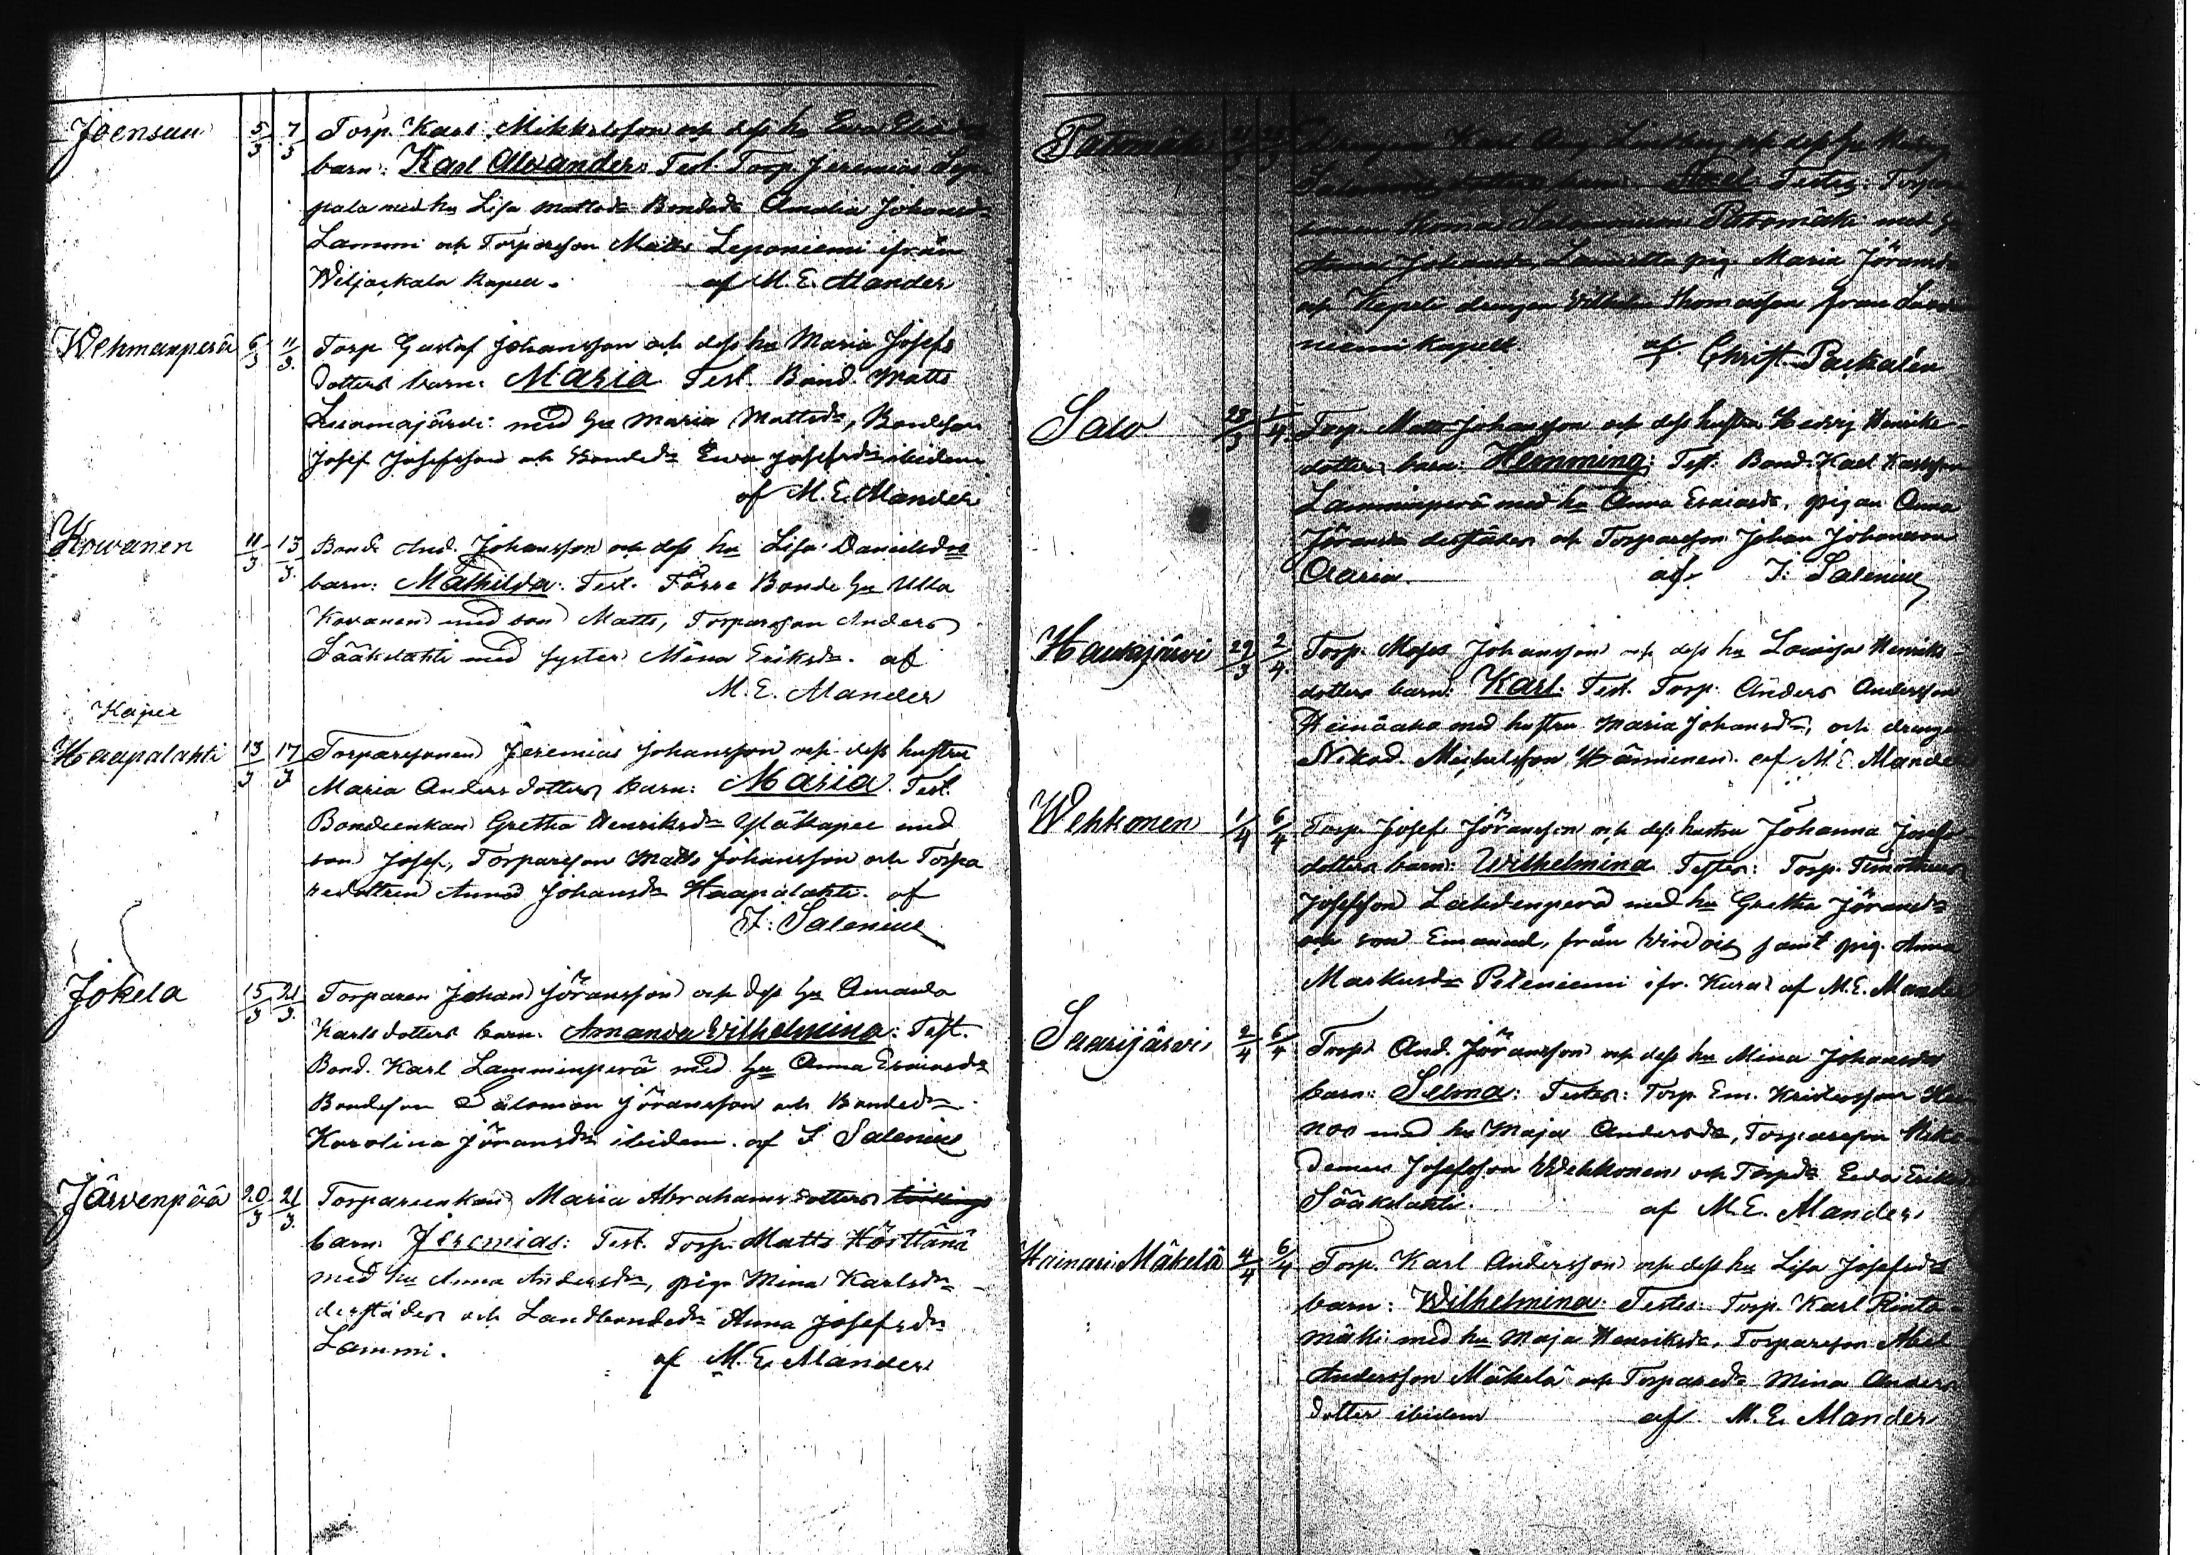 Joensuu 5/3 7/3 Torp. Karl Mikkelsson och dess hu Ewa Elias
barn: Karl Alexander. Test. Torp. Jeremias Sep
pala med hu Lisa Mattsdr Bondedr Amalia Johansdr
Lammi och Torparson Matts Leponiemi ifrån
Wiljakkala Kapell. af M. E. Mander
Wehmanperä 6/3 11/3 Torp Gustaf Johansson och dess hu Maria Josefs
dotters barn: Maria Test. Bond. Matts
Luomajärvi med hu Maria Mattsdr, Bondeson
Josef Josefsson och Bondedr Ewa Josefsdr ibidem
af M. E. Mander
Kowanen 11/3 13/3 Bond. And. Johansson och dess hu Lisa Danielsdrs
barn: Mathilda. Test. Förre Bonde hu Ulla
Kovanen med son Matts, Torparson Anders
Sääkslahti med syster Mina Eriksdr. af
M. E. Mander
Kapee
Haapalahti 13/3 17/3 Torparsonen Jeremias Johansson och dess hustru
Maria Anders dotters barn: Maria. Test.
Bondeenkan Gretha Henriksdr Yläkapee med
son Josef, Torparson Matts Johansson och Torpa
redottren Anna Johansdr Haapalahti. af
F: Salenius
Jokela 15/3 21/3 Torparen Johan Jöransson och dess hu Amanda
Karlsdotters barn. Amanda Wilhelmina: Test.
Bond. Karl Lamminperä med hu Anna Esaiasdr
Bondeson Salomon Jöransson och Bondedr
Karolina Jöransdr ibidem. af F Salenius
Järvenpää 20/3 21/3 Torpareenkan Maria Abrahams dotters
barn. Jeremias: Test. Torp. Matts Hörttänä
med hu Anna Andersdr, piga Mina Karlsdr
derstädes och Landbondedr Anna Josefsdr
Lammi. af M. E. Mander
Drengen Karl Aug. Lindberg och dess hu
dotters barn: Axel Testes: Torpare
sonen Thomas Salomonsson Patomäki med
Anna Johansdr, pig. Maria Jöransdr
och drengen Vilhelm Thomasson från
niemi Kapell af Christ. Packalén
Salo 28/3 1/4 Torp. Matts Johansson och dess hustru Hedvig Henriks
dotters barn: Hemming: Test: Bond: Karl Karlsson
Lamminperä med hu Anna Esaiasdr, pigan Anna
Jöransdr derstädes och Torparson Johan Johansson
af F: Salenius
Haukijärvi 29/3 2/4 Torp. Moses Johansson och dess hu Lovisa Henriks
dotters barn: Karl: Test. Torp. Anders Andersson
Heinäaho med hustru Maria Johansdr, och drengen
Nikod. Michelsson Hänninen. af M. E. Mander
Wehkonen 1/4 6/4 Torp. Josef Jöransson och dess hustru Johanna Josefs
dotters barn: Wilhelmina Testes: Torp. Timotheus
Josefsson Lahdenperä med hu Gretha Jöransdr
och son Emanuel, från Virdois samt pig. Anna
Markusdr Peleniemi ifr. Kuru af M. E. Mander
Saarijärvi 2/4 6/4 Torp. And. Jöransson och dess hu Mina Johansdrs
barn: Selma: Testes: Torp. Em. Kristersson
noo med hu Maja Andersdr, Torparson Niko
demus Josefsson Wehkonen och Torpdr Eva Eriks
Sääkslahti. af M. E. Mander
Hainari Mäkelä 4/4 6/4 Torp. Karl Andersson och dess hu Lisa Josefsdrs
barn: Wilhelmina. Testes: Torp. Karl Rinta
mäki med hu Maja Henriksdr, Torparson Abel
Andersson Mäkelä och Torparedr Mina Anders
dotter ibidem af M. E. Mander